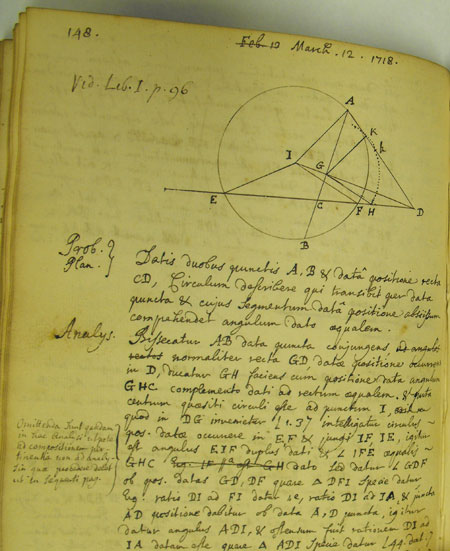 148.
Feb. 19 March. 12. 1718.
Vid. Lib. I. p. 96
A
K
k
I
G
E
C
F
H
D
B
Prob. Plan.
Datis duobus punctis A, B & datâ positione recta
CD, Circulum describere qui transibit per data
puncta & cujus segmentum datâ positione abscissum
comprehendet angulum dato æqualem.
Analys.
Bisecatur AB data puncta conjungens ad angulos
rectos normaliter recta GD datæ positione occurrens
in D, ducatur GH faciens cum positione data angulum
GHC complemento dati ad rectum æqualem, & puta
centrum quæsiti circuli esse ad punctum I,
quod in DG invenietur (1.3) intelligatur circulus
pos. datæ occurrere in E F & jungi IF, IE, igitur
est angulus EIF duplus dati & ∠ IFE æqualis
GHC dato sed datur ∠ GDF
ob pos. datas GD, DF quare △ DFI specie datur
Eg. ratio DI ad FI datur i.e. ratio DI ad IA, & juncta
AD positione dabitur ob data A, D puncta, igitur
datur angulus ADI, & ostensum fuit rationem DI ad
IA datam esse quare △ ADI specie datur (44. dat.)
Omittenda sunt quædam
in hac Analysi utpote
ad compositionem per-
tinentia non ad Analy-
sin quæ
ut in sequenti pag.